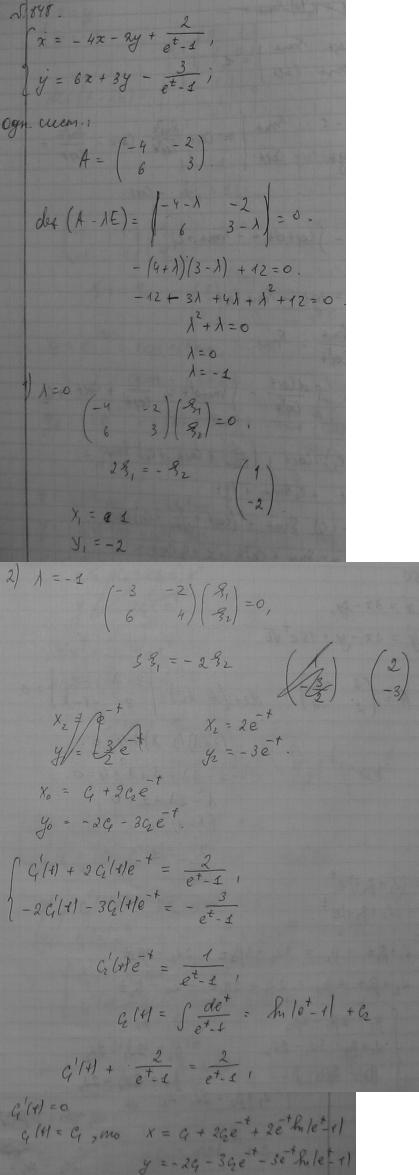 №848.
{ ẋ = -4x - 2y + 2/(e^t - 1),
{ ẏ = 6x + 3y - 3/(e^t - 1);
одн. сист.:
A = (-4 -2; 6 3).
det (A - λE) = |-4-λ -2; 6 3-λ| = 0.
-(4+λ)(3-λ) + 12 = 0.
-12 - 3λ + 4λ + λ² + 12 = 0
λ² + λ = 0
λ = 0
λ = -1
1) λ = 0
(-4 -2; 6 3)(ξ₁; ξ₂) = 0,
2ξ₁ = -ξ₂ (1; -2)
x₁ = 1
y₁ = -2
2) λ = -1
(-3 -2; 6 4)(ξ₁; ξ₂) = 0,
3ξ₁ = -2ξ₂ (1; -3/2) (2; -3)
x₂ = e^-t x₂ = 2e^-t
y = -3/2 e^-t y₂ = -3e^-t.
x₀ = c₁ + 2c₂e^-t
y₀ = -2c₁ - 3c₂e^-t.
{ c₁'(t) + 2c₂'(t)e^-t = 2/(e^t - 1),
{ -2c₁'(t) - 3c₂'(t)e^-t = -3/(e^t - 1)
c₂'(t)e^-t = 1/(e^t - 1),
c₂(t) = ∫ de^t/(e^t - 1) = ln|e^t - 1| + c₂
c₁'(t) + 2/(e^t - 1) = 2/(e^t - 1),
c₁'(t) = 0
c₁(t) = c₁, то x = c₁ + 2c₂e^-t + 2e^-t ln|e^t - 1|
y = -2c₁ - 3c₂e^-t - 3e^-t ln|e^t - 1|